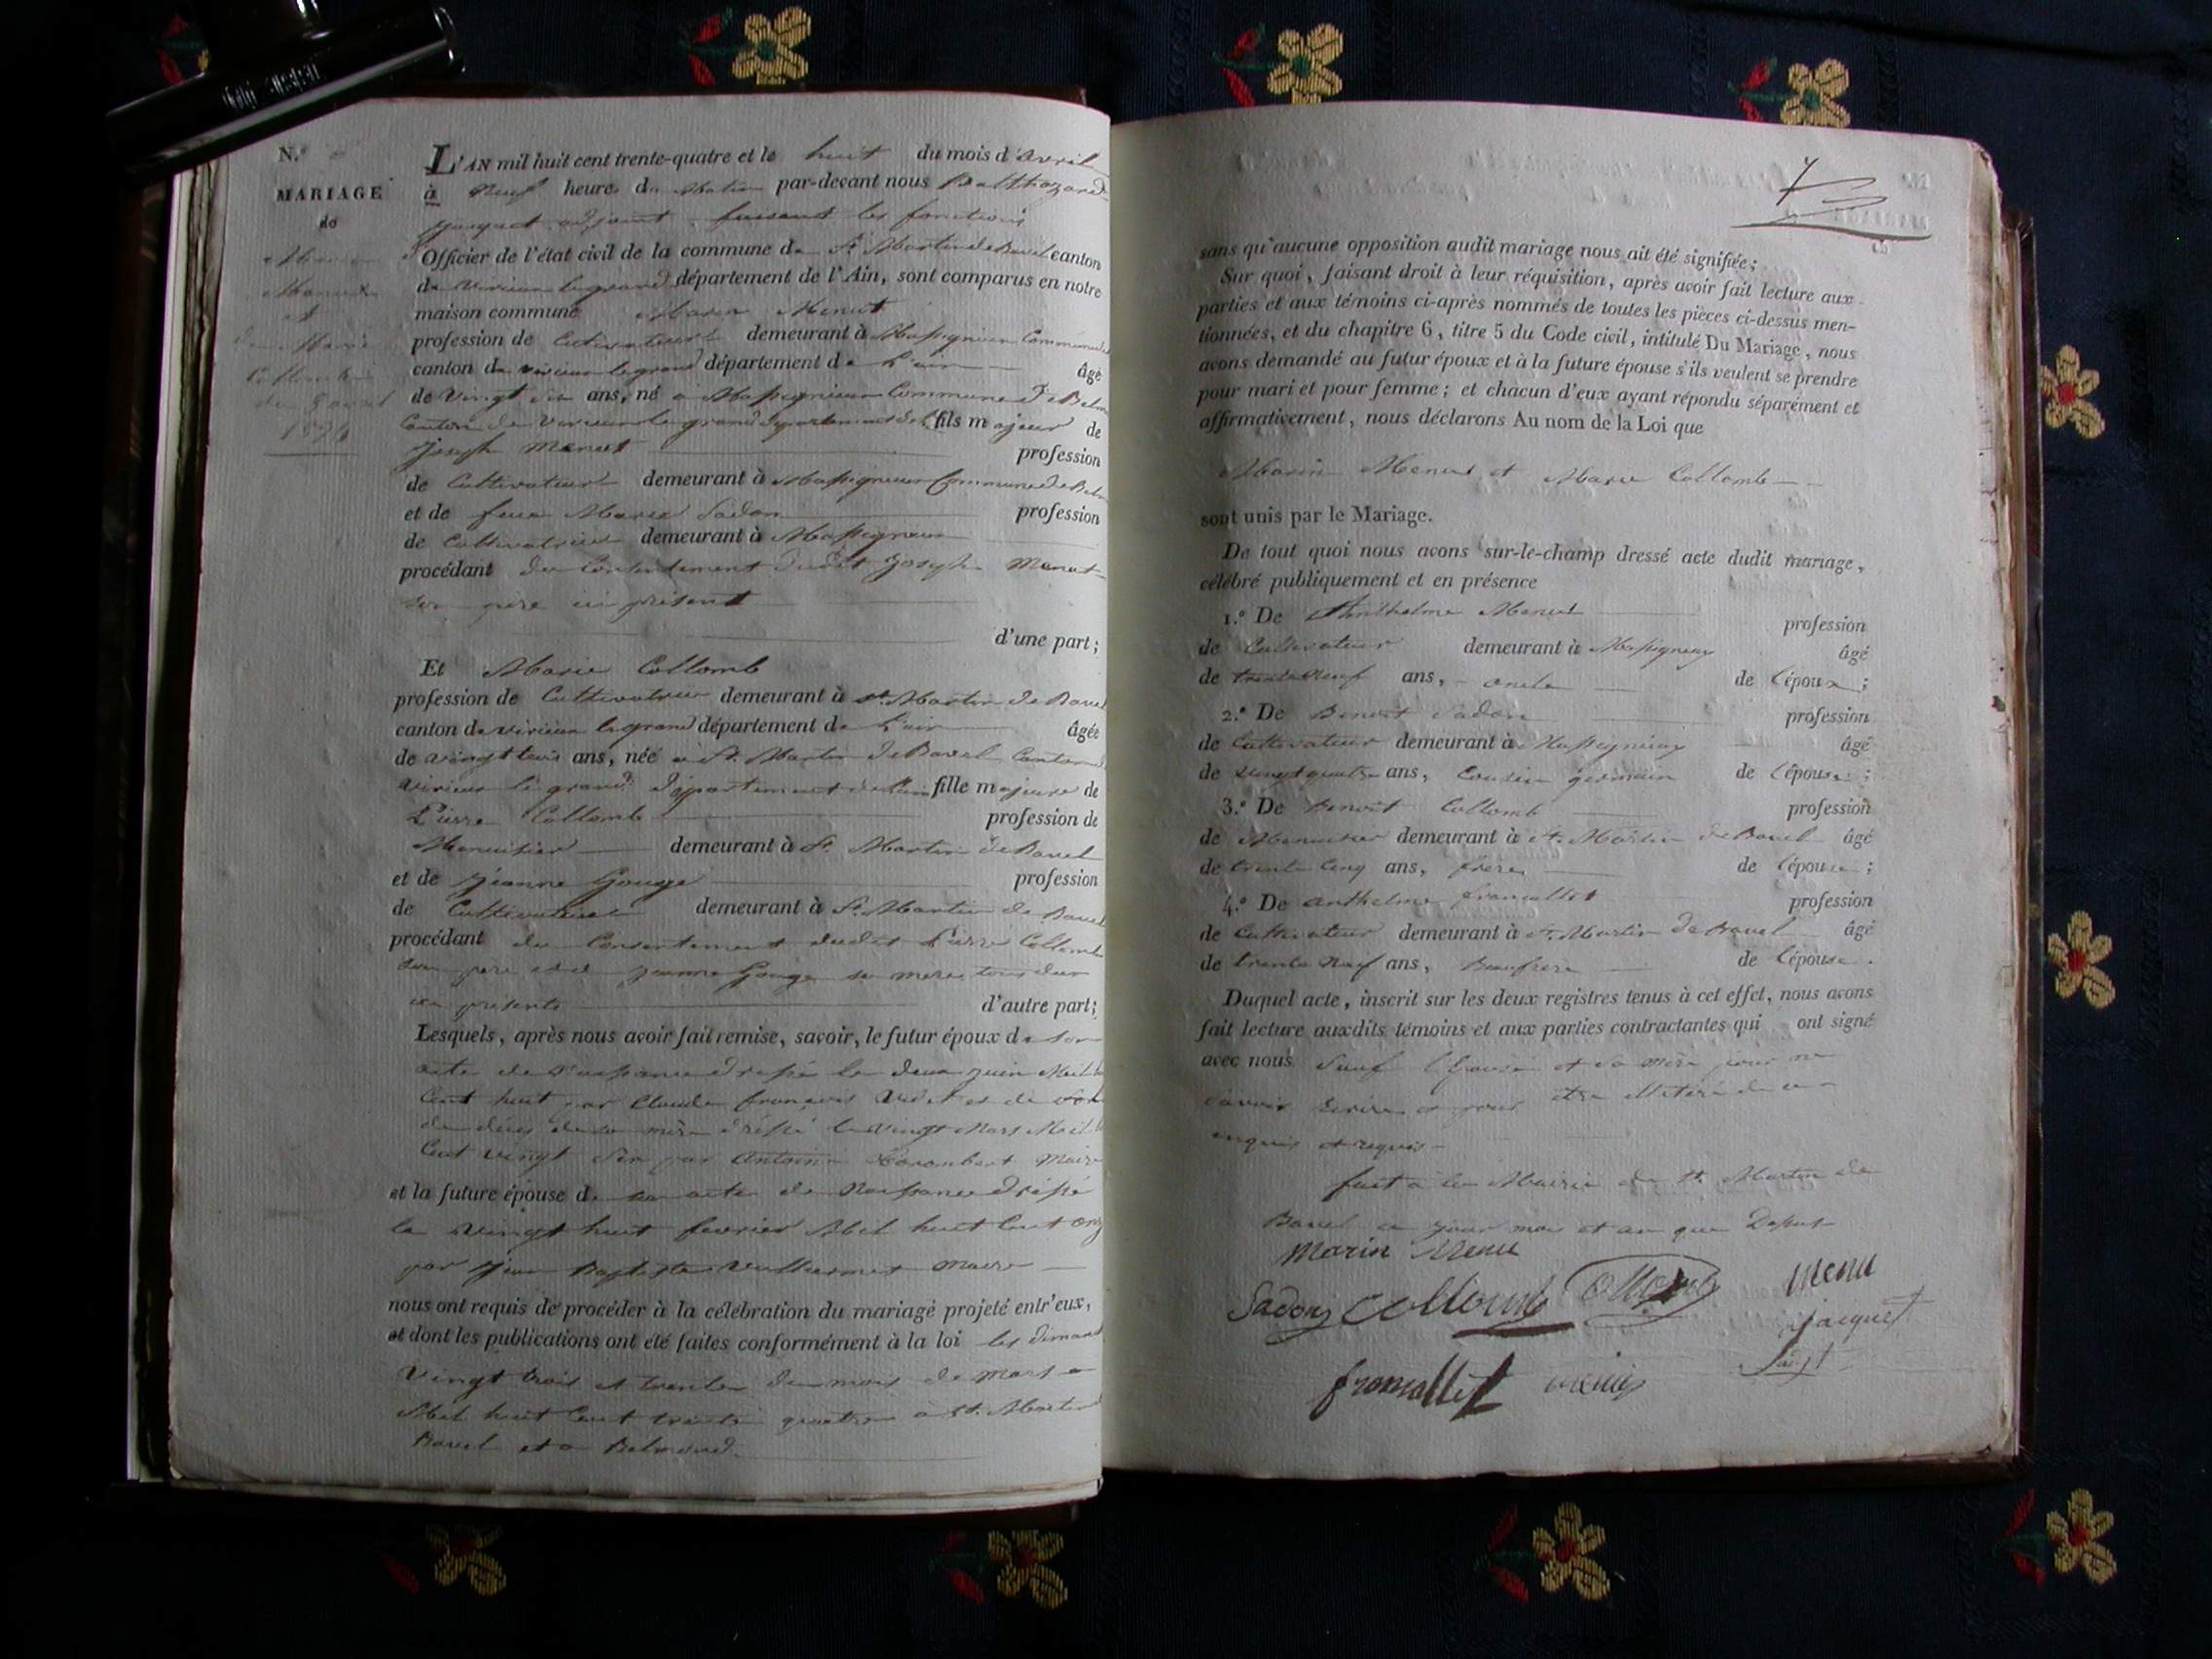 N.°
MARIAGE
de
Marin
Menut
et
de Marie
Collomb
du 8 avril
1834
L'AN mil huit cent trente-quatre et le huit du mois d'avril
à neuf heures du Matin par-devant nous Balthazard
Jacquet adjoint faisant les fonctions
d'Officier de l'état civil de la commune de St. Martin de Bavel canton
de virieu le grand département de l'Ain, sont comparus en notre
maison commune Marin Menut
profession de Cultivateur demeurant à Massignieu Commune de
canton de virieu le grand département de L'ain âgé
de vingt six ans, né à Massignieu Commune De Belm
Canton de virieu le grand département de fils majeur de
Joseph Menut profession
de Cultivateur demeurant à Massignieu Commune de Belm
et de feue Marie Sadon profession
de Cultivatrice demeurant à Massignieu
procédant du Consentement dudit Joseph Menut
son père ici présent
d'une part;
Et Marie Collomb
profession de Cultivatrice demeurant à St. Martin de Bavel
canton de virieu le grand département de L'ain âgée
de vingt trois ans, née à St. Martin De Bavel Canton
virieu le grand Département de l'ain fille majeure de
Pierre Collomb profession de
Menuisier demeurant à St. Martin de Bavel
et de Jeanne Gouge profession
de Cultivatrice demeurant à St. Martin de Bavel
procédant du Consentement dudit Pierre Collomb
son père et de Jeanne Gouge sa mère tous deux
ici présents d'autre part;
Lesquels, après nous avoir fait remise, savoir, le futur époux de son
acte de Naissance dressé le deux juin Mil h
Cent huit par Claude françois et de
de décès de sa mère dressé le vingt Mars Mil h
Cent vingt Six par Antoine Maire
et la future épouse de son acte de Naissance dressé
le vingt huit fevrier Mil huit Cent onz
par Jean Baptiste Vuillermet Maire
nous ont requis de procéder à la célébration du mariage projeté entr'eux,
et dont les publications ont été faites conformément à la loi les dimanc
vingt trois et trente du mois de Mars
Mil huit Cent trente quatre à St. Martin d
Bavel et a Belmond.
7
sans qu'aucune opposition audit mariage nous ait été signifiée;
Sur quoi, faisant droit à leur réquisition, après avoir fait lecture aux
parties et aux témoins ci-après nommés de toutes les pièces ci-dessus men-
tionnées, et du chapitre 6, titre 5 du Code civil, intitulé Du Mariage, nous
avons demandé au futur époux et à la future épouse s'ils veulent se prendre
pour mari et pour femme; et chacun d'eux ayant répondu séparément et
affirmativement, nous déclarons Au nom de la Loi que
Marin Menut et Marie Collomb
sont unis par le Mariage.
De tout quoi nous avons sur-le-champ dressé acte dudit mariage,
célébré publiquement et en présence
1.° De Anthelme Menut profession
de Cultivateur demeurant à Massignieu âgé
de trente Neuf ans, oncle de l'époux;
2.° De Benoit Sadon profession
de Cultivateur demeurant à Massignieu âgé
de vingt quatre ans, Cousin germain de l'épouse;
3.° De Benoit Collomb profession
de Menuisier demeurant à St. Martin de Bavel âgé
de trente Cinq ans, frère de l'épouse;
4.° De Anthelme francallet profession
de Cultivateur demeurant à St. Martin De Bavel âgé
de trente Neuf ans, Beaufrère de l'épouse.
Duquel acte, inscrit sur les deux registres tenus à cet effet, nous avons
fait lecture auxdits témoins et aux parties contractantes qui ont signé
avec nous Sauf l'Epouse et sa mère pour ne
savoir Ecrire et pour être de ce
enquis et requis
fait à la Mairie de St. Martin de
Bavel ce jour mois et an que Dessus
Marin Menu
Sadon Collomb Menu
Jacquet
francallet